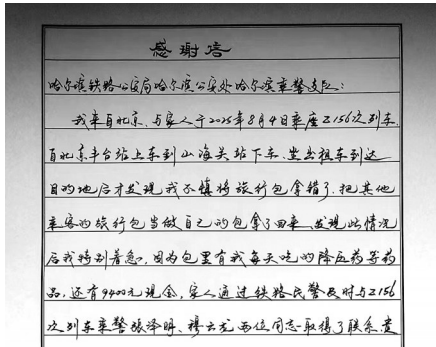 感谢信
哈尔滨铁路公安局哈尔滨公安处哈尔滨乘警支队：
我来自北京，与家人于2025年8月4日乘座Z156次列车，
自北京丰台站上车到山海关站下车，坐出租车到达
目的地后才发现我不慎将旅行包拿错了，把其他
乘客的旅行包当做自己的包拿了回来，发现此情况
后我特别着急，因为包里有我每天吃的降压药等药
品，还有9400元现金，家人通过铁路民警及时与Z156
次列车乘警张泽明、穆云龙两位同志取得了联系，贵